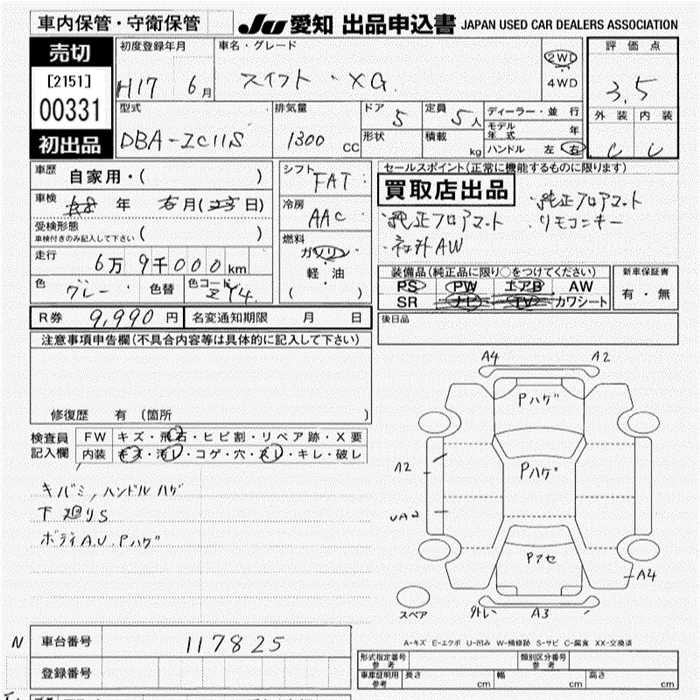 車内保管・守衛保管
JU 愛知 出品申込書 JAPAN USED CAR DEALERS ASSOCIATION
売切
[2151]
00331
初出品
初度登録年月
H17 6月
車名・グレード
スイフト・XG.
2WD
4WD
評価点
3.5
外装 内装
C C
型式
DBA-ZC11S
排気量
1300 cc
ドア 5
形状
定員 5人
積載 kg
ディーラー・並行
モデル年式 年
ハンドル 左 右
車歴 自家用・( )
車検 年 月( 日)
受検形態
車検付きのみ記入して下さい ( )
走行 6万9千000km
色 グレー 色替 色コード ZY4
シフト FAT
冷房 AAC
燃料
ガソリン
軽・油
( )
セールスポイント(正常に機能するものに限ります)
買取店出品
・純正フロアマット
・純正フロアマット ・リモコンキー
・社外AW
装備品(純正品に限り○をつけてください)
PS PW エアB AW
SR ナビ TV カワシート
新車保証書
有・無
R券 9,990円 名変通知期限 月 日
後日品
注意事項申告欄(不具合内容等は具体的に記入して下さい)
修復歴 有(箇所 )
検査員記入欄
FW キズ・飛石・ヒビ割・リペア跡・X要
内装 キズ・汚レ・コゲ・穴・スレ・キレ・破レ
キバミ,ハンドルハゲ
下廻りS
ボディA.U.Pハゲ
A4 A2
Pハゲ
A2
Pハゲ
UA2
Pアセ
A4
スペア
外レ A3
A-キズ E-エクボ U-凹み W-補修跡 S-サビ C-腐食 XX-交換済
N 車台番号 117825
登録番号
形式指定番号 参考
類別区分番号 参考
車庫証明用参考 長さ cm 幅 cm 高さ cm